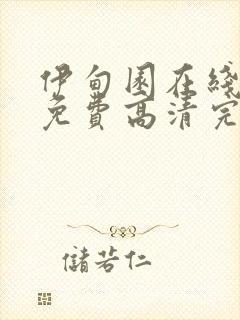 伊甸园在线
免费高清完
儲若仁